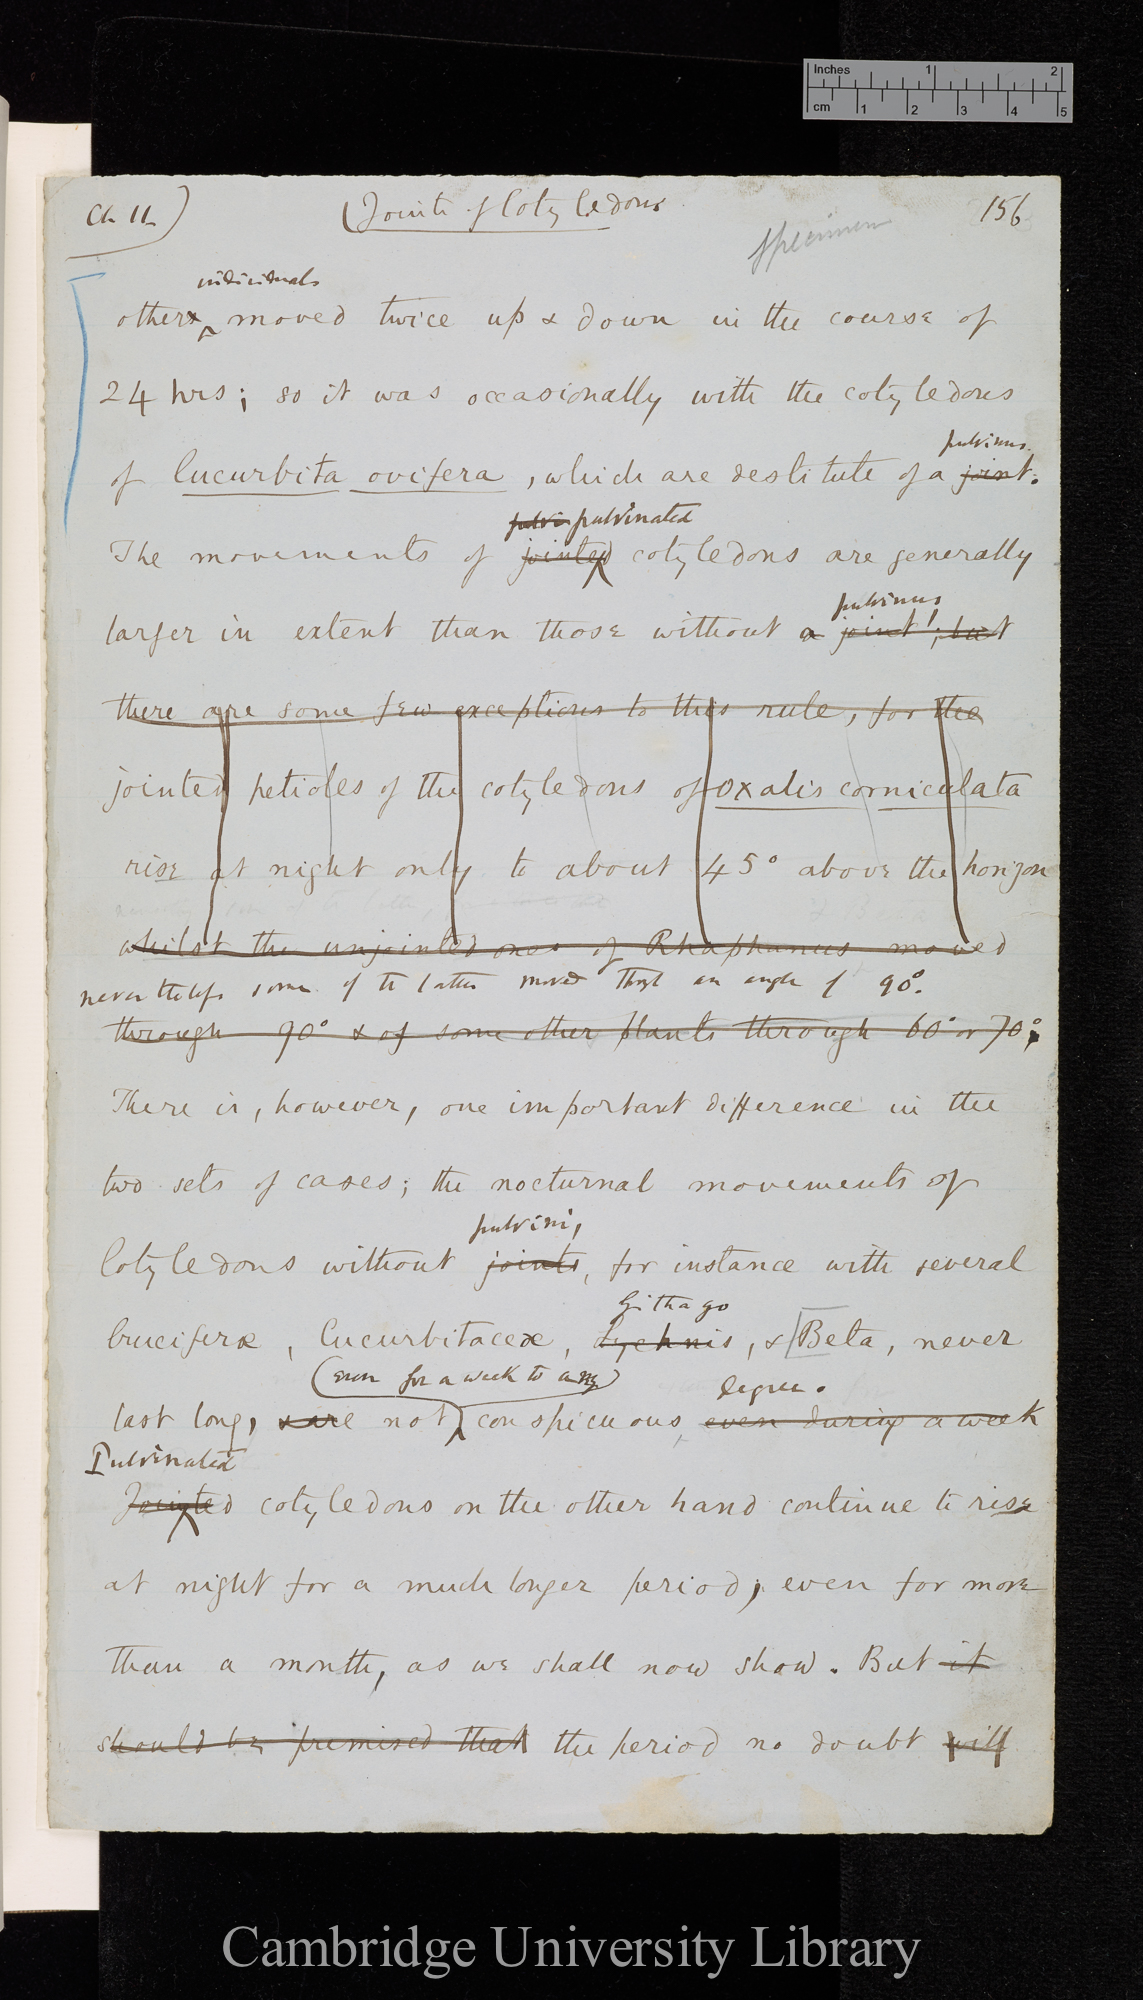 Inches 1 2
cm 1 2 3 4 5
Ch II)
(Joints of Cotyledons
156
specimen
individuals
others moved twice up & down in the course of
24 hrs; so it was occasionally with the cotyledons
pulvinus.
of Cucurbita ovifera, which are destitute of a joint.
pulvi pulvinated
The movements of jointed cotyledons are generally
pulvinus,
larger in extent than those without a joint; but
there are some few exceptions to this rule, for the
jointed petioles of the cotyledons of Oxalis corniculata
rise at night only to about 45° above the horizon
whilst the unjointed ones of Rhaphanus moved
nevertheless some of the latter moved through an angle of 90°.
through 90° & of some other plants through 60° or 70°;
There is, however, one important difference in the
two sets of cases; the nocturnal movements of
pulvini,
Cotyledons without joints, for instance with several
Githago
Cruciferæ, Cucurbitaceæ, Lychnis, & Beta, never
(even for a week to any) degree.
last long, & are not conspicuous, even during a week
Pulvinated
Jointed cotyledons on the other hand continue to rise
at night for a much longer period, even for more
than a month, as we shall now show. But it
should be premised that the period no doubt will
Cambridge University Library